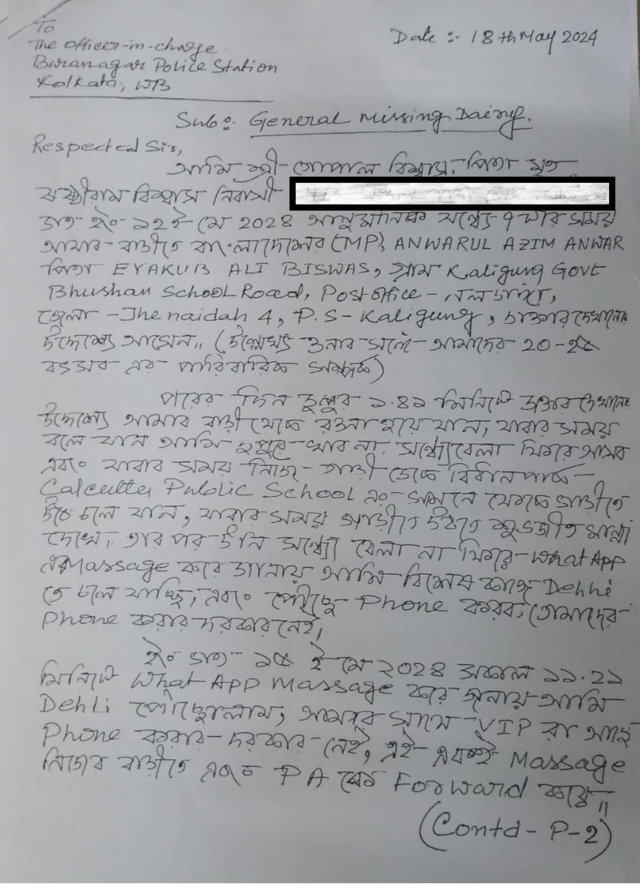 To
The officer-in-charge
Baranagar Police Station
Kolkata, WB
Date :- 18th May 2024
Sub: General Missing Dairy.
Respected Sir,
আমি শ্রী গোপাল বিশ্বাস, পিতা মৃত
বিশ্বাস নিবাসী
গত ইং ১২ই মে 2024 আনুমানিক সন্ধ্যে ৭ টার সময়
আমার বাড়ীতে বাংলাদেশের (MP) ANWARUL AZIM ANWAR
পিতা EYAKUB ALI BISWAS, গ্রাম Kaligung Govt
Bhushan School Road, Post office - নলডাঙ্গা,
জেলা - Jhenaidah 4, P.S - Kaligung, ডাক্তার দেখানোর
উদ্দেশ্যে আসেন।। (উল্লেখ্য ওনার সঙ্গে আমাদের 20-২৫
বৎসর এর পারিবারিক সম্পর্ক)
পরের দিন দুপুর ১.৪১ মিনিটে ডাক্তার দেখানোর
উদ্দেশ্যে আমার বাড়ী থেকে রওনা হয়ে যান, যাবার সময়
বলে যান আমি দুপুরে খাব না, সন্ধ্যেবেলা ফিরে আসব
এবং যাবার সময় নিজে গাড়ী ডেকে বিধান পার্ক
Calcutta Public School এর সামনে থেকে গাড়ীতে
উঠে চলে যান, যাবার সময় গাড়ীতে উঠতে শুভজীত মান্না
দেখে, তার পর উনি সন্ধ্যে বেলা না ফিরে What App
এ Massage করে জানায় আমি বিশেষ কাজে Dehli
তে চলে যাচ্ছি, এবং পৌঁছে Phone করব, তোমাদের
Phone করার দরকার নেই,
ইং গত ১৫ ই মে ২০২৪ সকাল ১১.২১
মিনিটে What APP Massage করে জানায় আমি
Dehli পৌঁছোলাম, আমার সাথে VIP রা আছে
Phone করার দরকার নেই, এই একই Massage
নিজের বাড়ীতে এবং PA কে Forward করে।।
(Contd - P-2)